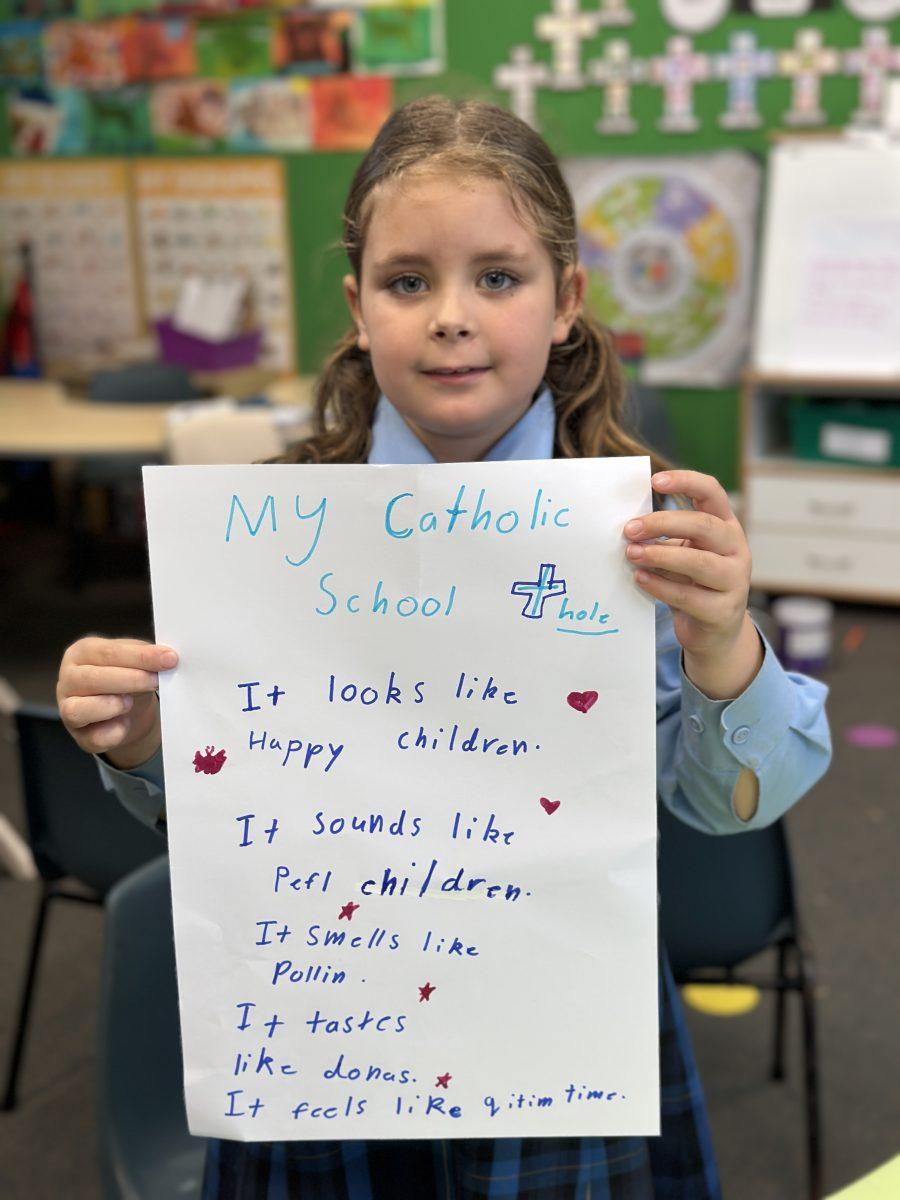 My Catholic
School hole
It looks like
Happy children.
It sounds like
Pefl children.
It smells like
Pollin.
It tastes
like donas.
It feels like qitim time.